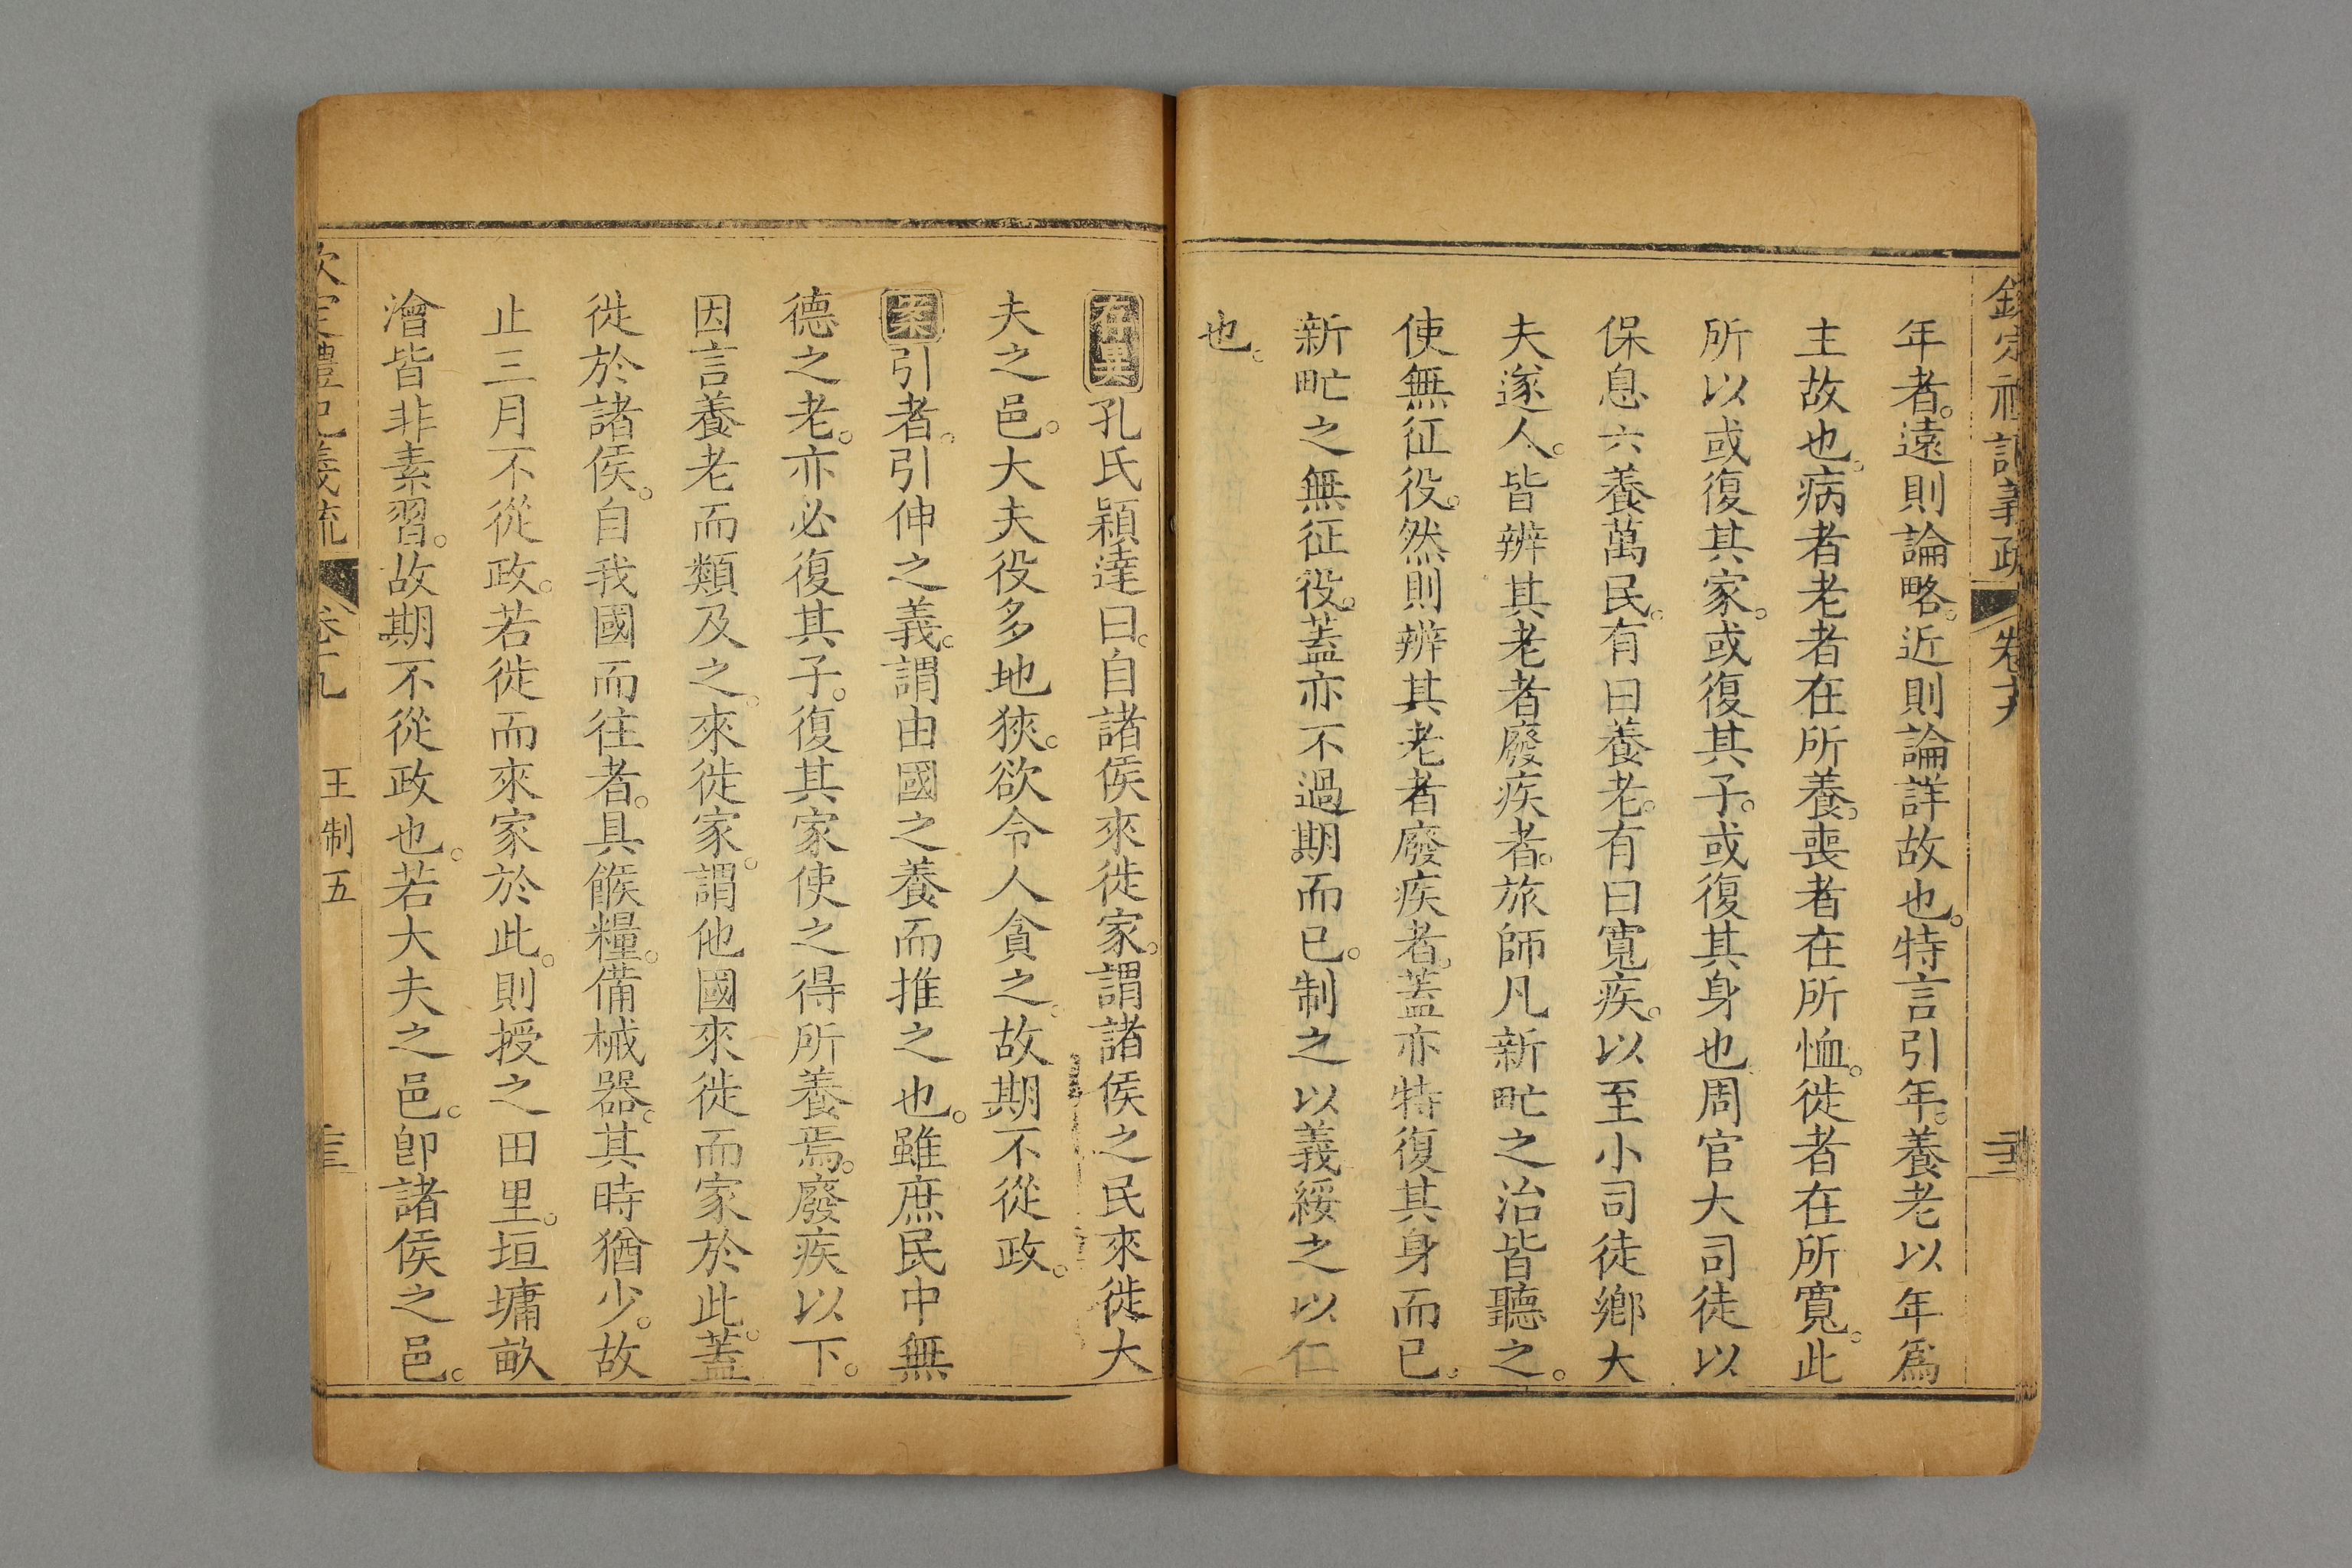 年者。遠則論略。近則論詳故也。特言引年。養老以年爲
主故也。病者老者在所養。喪者在所恤。徙者在所寬。此
所以或復其家。或復其子。或復其身也。周官大司徒以
保息六養萬民。有曰養老。有曰寬疾。以至小司徒鄉大
夫遂人。皆辨其老者廢疾者。旅師凡新甿之治皆聽之。
使無征役。然則辨其老者廢疾者。蓋亦特復其身而已。
新甿之無征役。蓋亦不過期而已。制之以義綏之以仁
也。
存異孔氏穎達曰。自諸侯來徙家。謂諸侯之民來徙大
夫之邑。大夫役多地狹。欲令人貪之。故期不從政。
案引者。引伸之義。謂由國之養而推之也。雖庶民中無
德之老。亦必復其子。復其家使之得所養焉。廢疾以下。
因言養老而類及之。來徙家。謂他國來徙而家於此。蓋
徙於諸侯。自我國而往者。具餱糧。備械器。其時猶少。故
止三月不從政。若徙而來家於此。則授之田里。垣墉畝
澮皆非素習。故期不從政也。若大夫之邑。卽諸侯之邑。
欽定禮記義疏 卷十九 王制五